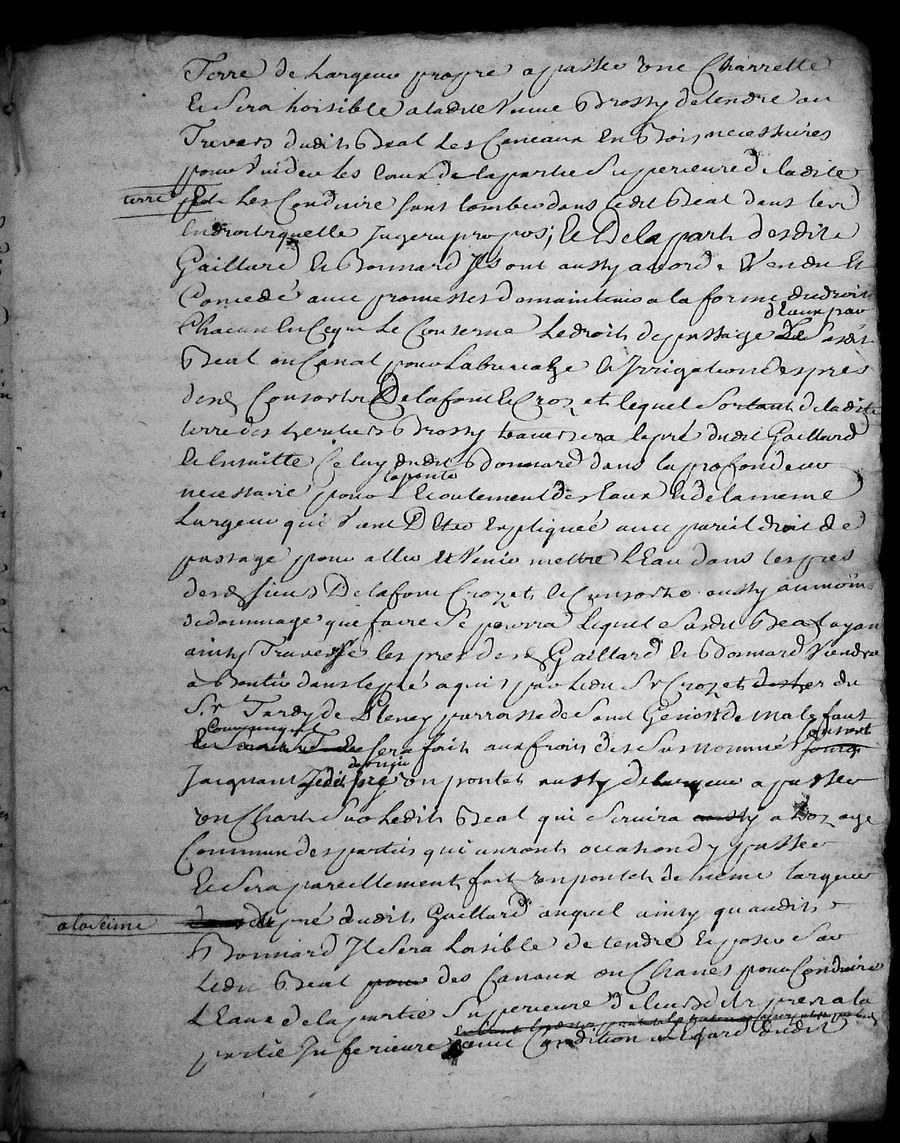 Terre de Largeur propre a passer une Charrette
Et Sera Loisible a ladite veuve Brossy detendre au
Travers dudit Beal Les Caneaux En Bois necessaires
pour vuider Les Eaux de la partie Superieure de ladite
terre Et Les Conduire sans tomber dans ledit Beal dans
Endroit quelle Jugera propos; Et De la part desdits
Gaillard Et Bonnard Ils ont aussy accordé Vendu Et
Concedé avec promesses de maintenir a la forme du droit
Chacun En Ce qui Le Concerne Le droit de passage
deaux par
Le Susdit
Beal ou Canal pour Labreuvage Et Irrigation des pres
desd Consorts Delafont et Crozet lequel Sortant de ladite
terre des heritiers Brossy traversera le pré dudit Gaillard
Et Ensuitte Celuy dudit Bonnard dans la profondeur
la pente
necessaire pour Ecoulement des Eaux Et de la meme
Largeur qui Vient D'Etre Expliquée avec pareil droit de
passage pour aller et Venir mettre L'Eau dans les pres
desd Sieurs Delafont Crozet et Consorts aussy au moins
de dommage que faire Se pourra lequel Susdit Beal ayant
ainsy Traversé les pres desd Gaillard Et Bonnard Viendra
a Sentier dans le pré acquis par Ledit Sr Crozet du
Sr Tardy de pleney parroisse de Saint Genest de Malifaut
Sera fait aux frais des Susnommés
Jacquant un pontet aussy de largeur a passer
un Char Sur Ledit Beal qui Servira a Lusage
Commun des parties qui auront occasion dy passer
Et Sera pareillement fait un pontet de meme largeur
a la Seime
pré dudit Gaillard auquel ainsy quaudit
Bonnard Il Sera Loisible de tendre Et poser Sur
Ledit Beal pour des Canaux ou Chanes pour Conduire
L'Eaux de la partie Superieure de leursdits pres a la
partie Inferieure avec Condition a Legard dudit